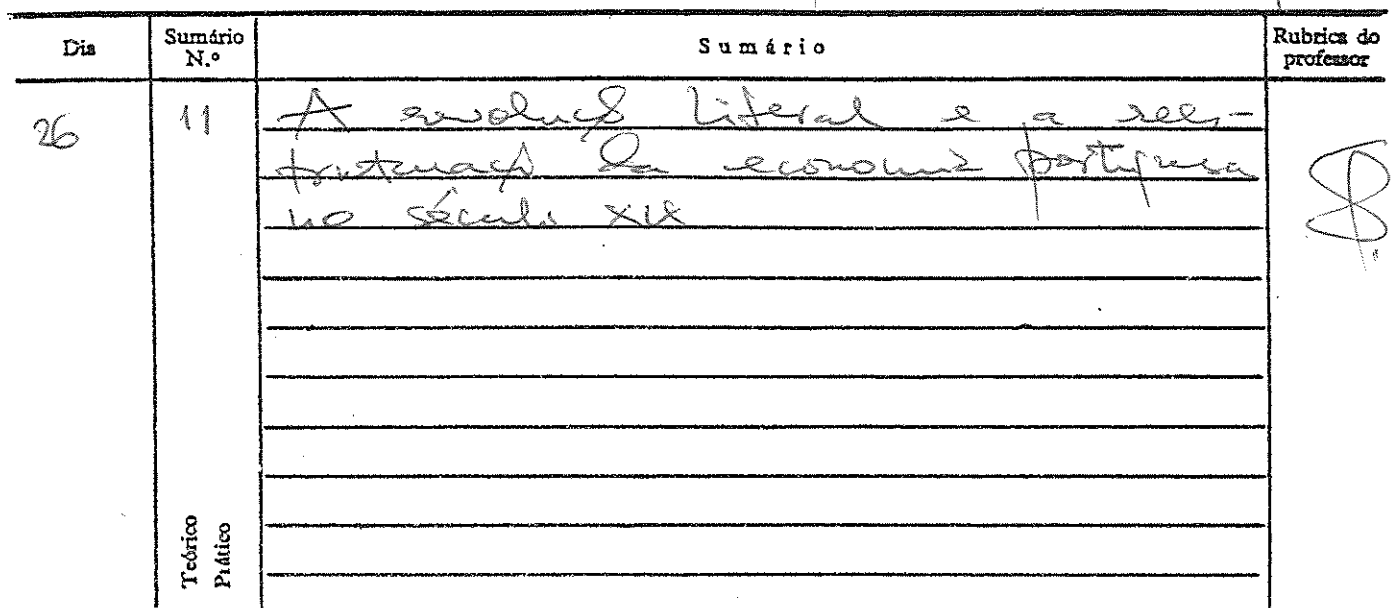 Dia Sumário N.º Sumário Rubrica do professor
26 11 A revolução liberal e a rees-
truturação da economia portuguesa
no século XIX
Teórico
Prático